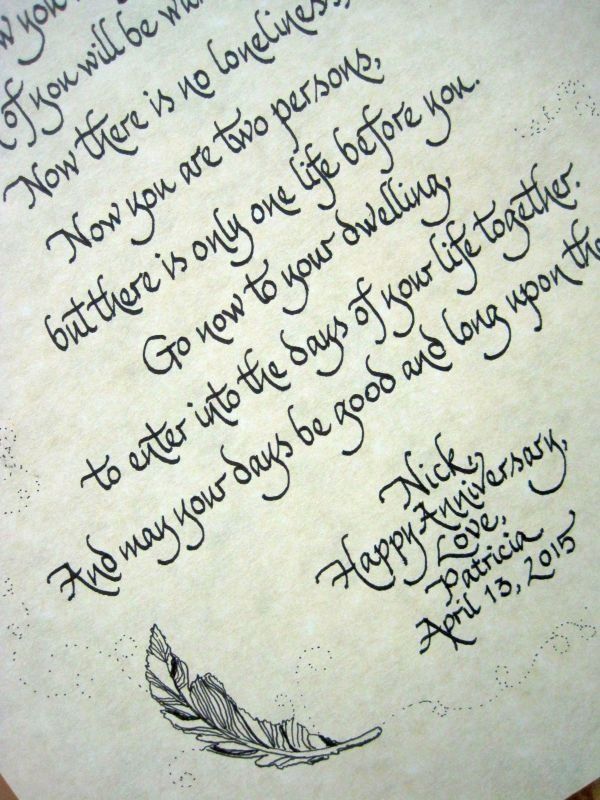 you
of you will be
Now there is no loneliness,
Now you are two persons,
but there is only one life before you.
Go now to your dwelling,
to enter into the days of your life together.
And may your days be good and long upon the
Nick,
Happy Anniversary,
Love,
Patricia
April 13, 2015